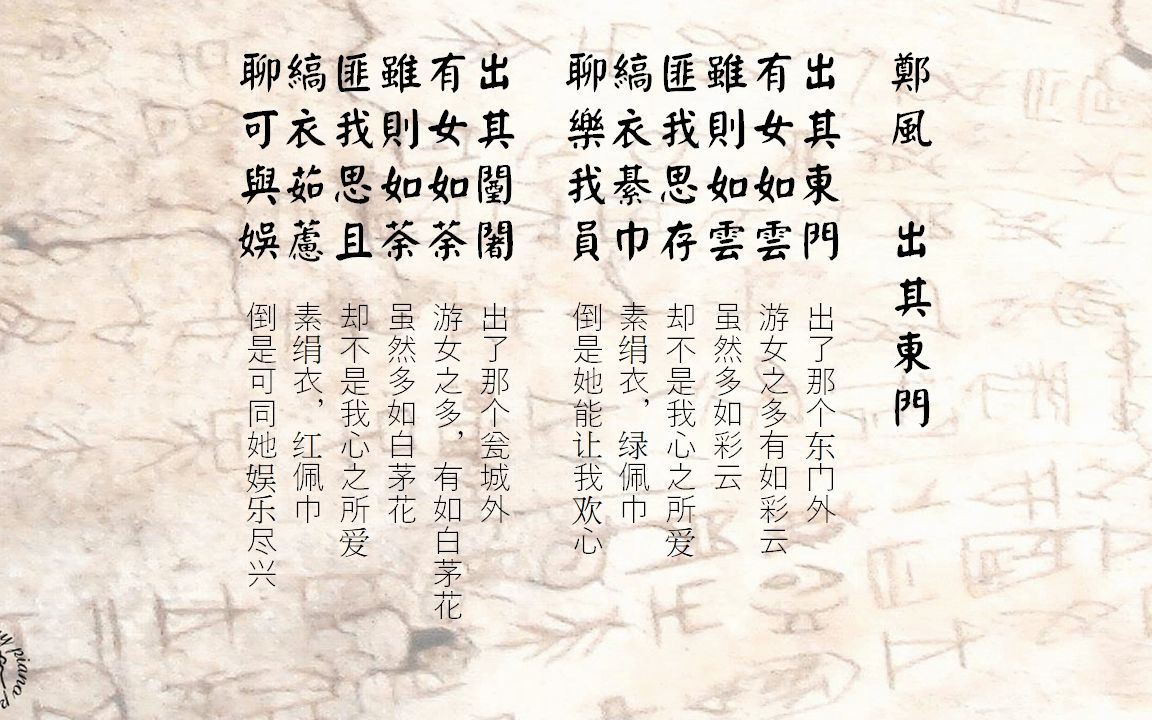 鄭風 出其東門
出其東門
有女如雲
雖則如雲
匪我思存
縞衣綦巾
聊樂我員
出了那个东门外
游女之多有如彩云
虽然多如彩云
却不是我心之所爱
素绢衣，绿佩巾
倒是她能让我欢心
出其闉闍
有女如荼
雖則如荼
匪我思且
縞衣茹藘
聊可與娛
出了那个瓮城外
游女之多，有如白茅花
虽然多如白茅花
却不是我心之所爱
素绢衣，红佩巾
倒是可同她娱乐尽兴
piano